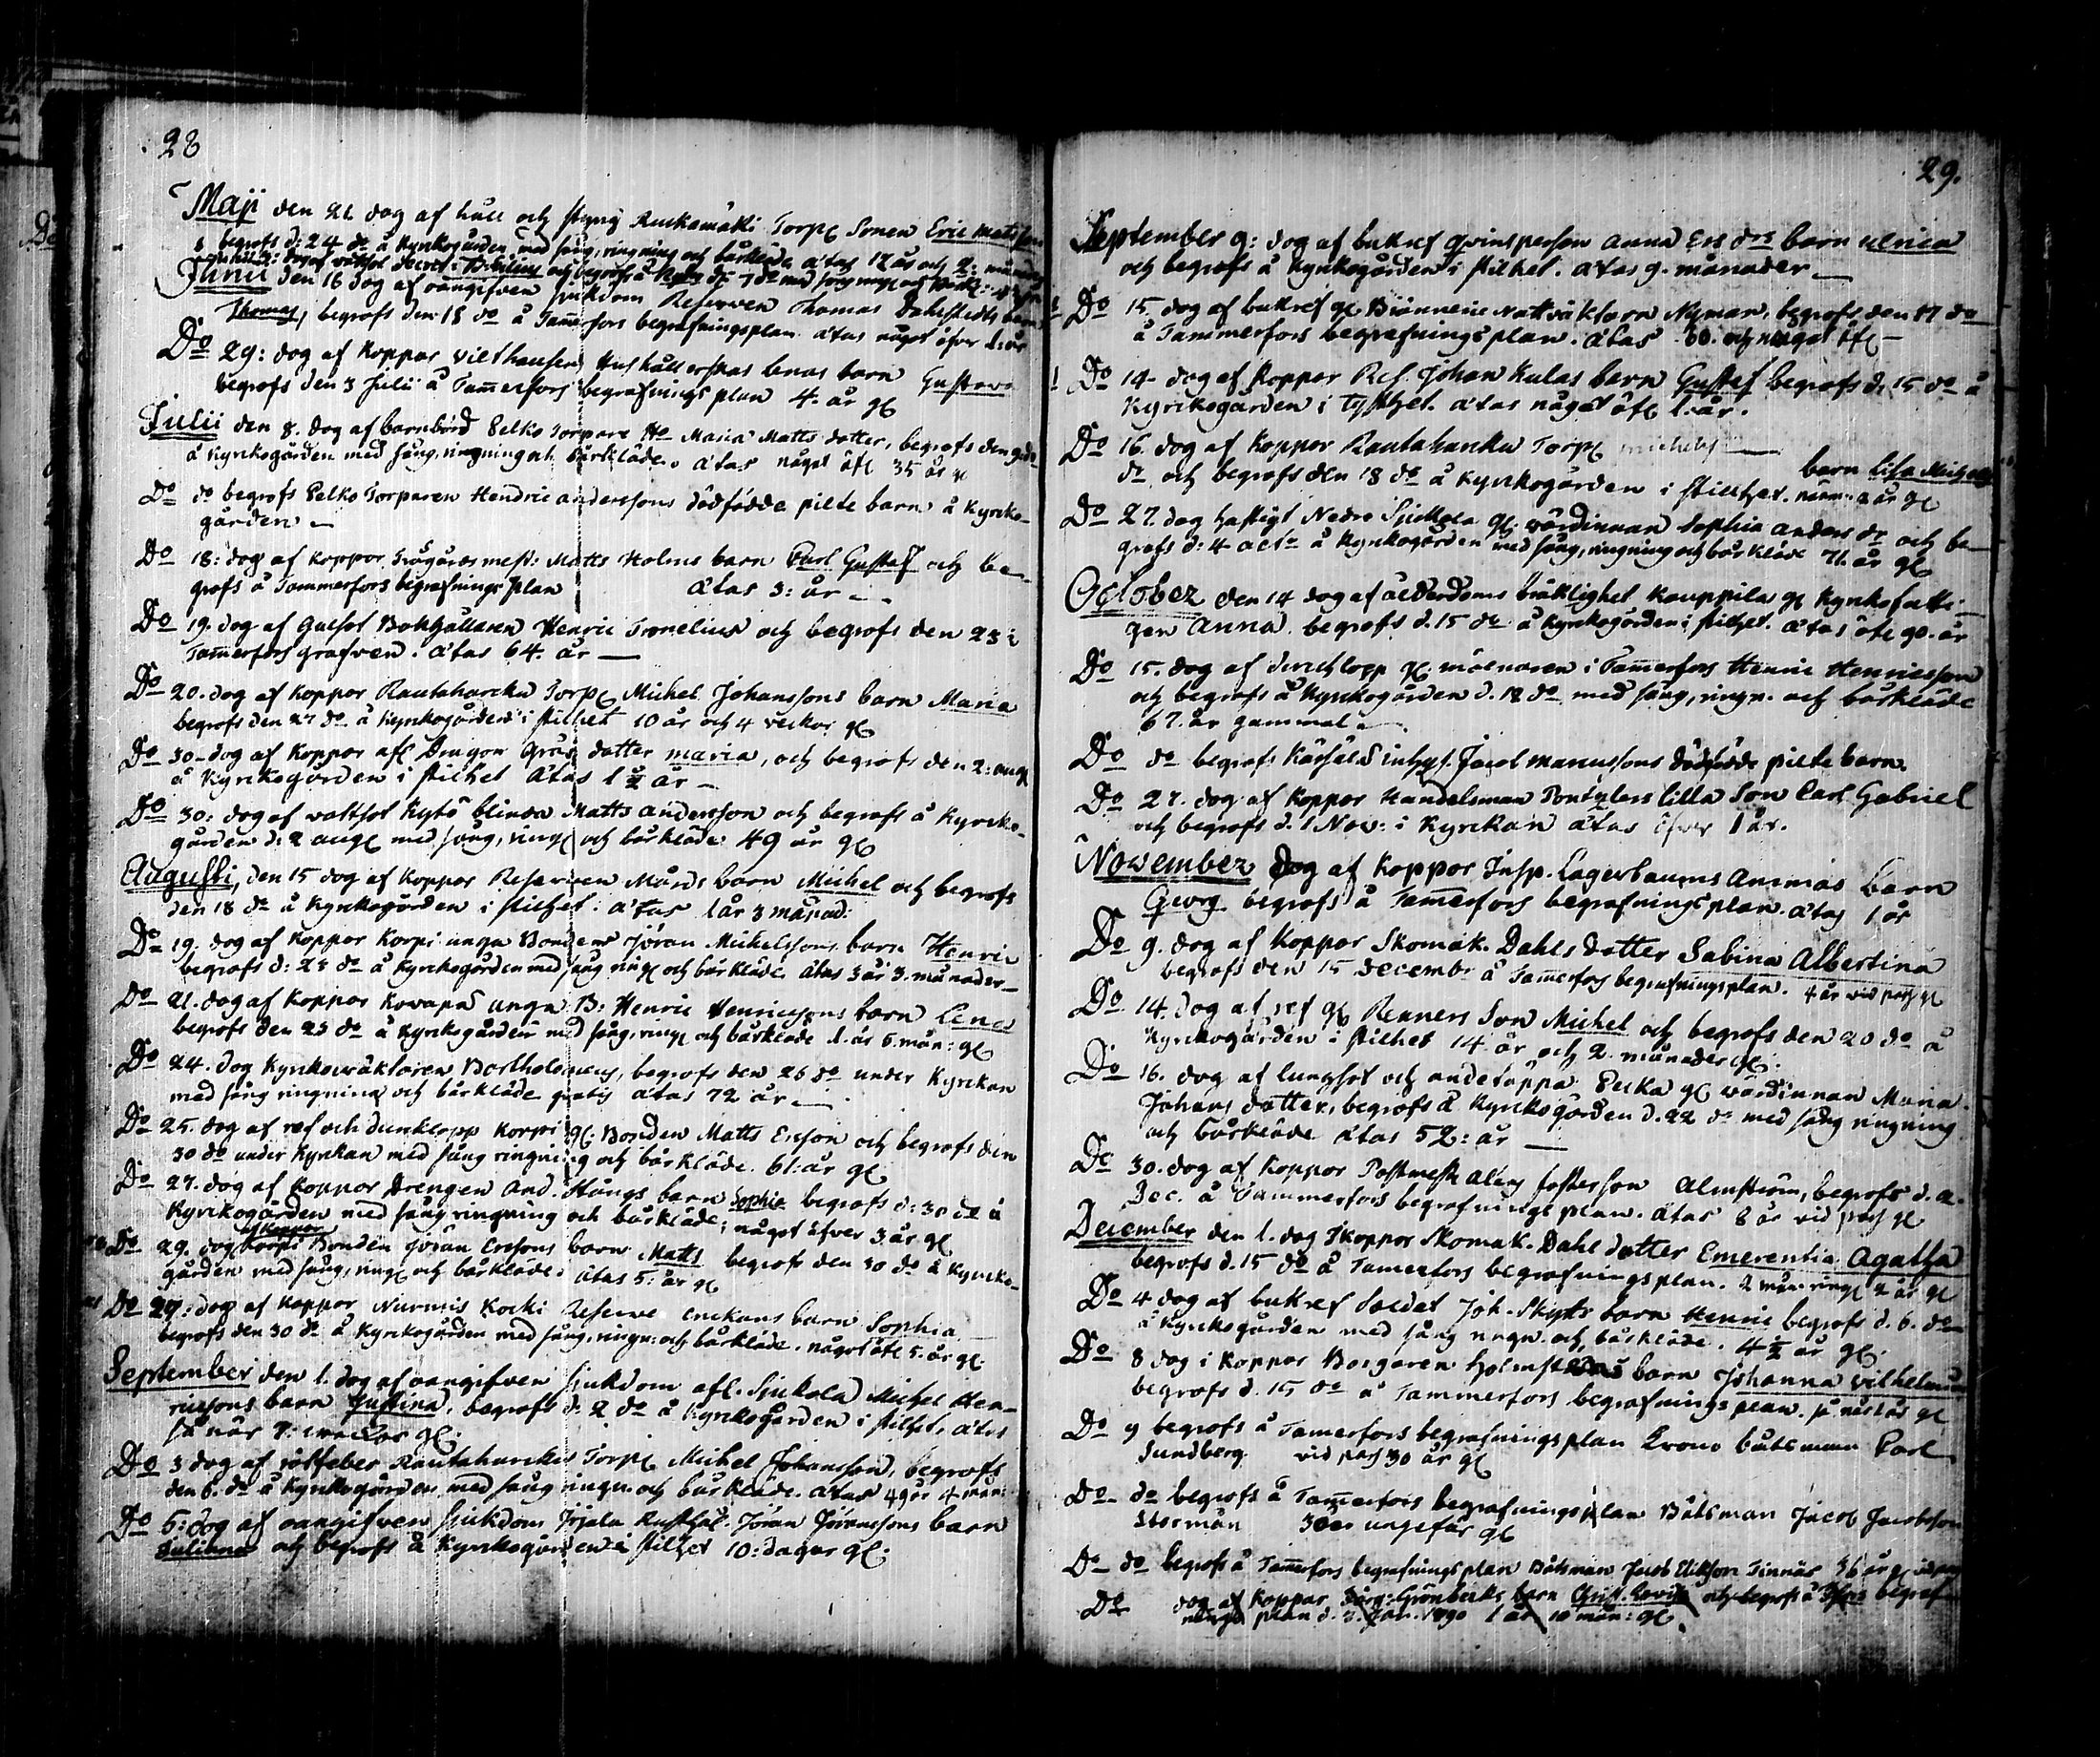 28
Maji den 21 dog af håll och styng Ruckamäki Torp. Sonen Eric Matsson
begrofs d: 24 do å Kyrkogården med sång, ringning och bårkläde ätas 12 år och 2: månader
Junii den 16 dog af oangifven siukdom Reserven Thomas Dahlstedts barn
Thomas, begrofs den 18 do å Tamerfors begrafningsplan. ätas något öfver 1: år
Do 29: dog af Koppor Hushållerskas Lenas barn Gustava
begrofs den 3 Julii å Tamerfors begrafnings plan 4. år gl
Julii den 8. dog af barnbörd Pelko Torpare Ho Maria Matts dotter, begrofs den
å Kyrkogården med sång, ringning och bårkläde. ätas något öfr 35 år gl
Do do begrofs Pelko Torparen Hendric anderssons dödfödde pilte barn å Kyrcko-
gården
Do 18: dog af Koppor Trägårdsmest: Matts Holms barn Carl Gustaf och be-
grofs å Tammerfors begrafnings plan ätas 3: år
Do 19. dog af Gulsot Bokhållaren Henric Tornelius och begrofs den 23 i
Tamerfors grafven. ätas 64. år
Do 20. dog af Koppor Rautaharcku Torp. Michel Johanssons barn Maria
begrofs den 27 do å Kyrkogården i stilhet 10 år och 4 veckor gl
Do 30. dog af Koppor afl Dragon Grås dotter maria, och begrofs den 2: aug
å Kyrckogården i stilhet ätas 1 1/2 år
Do 30: dog af vattsot Kytö blinda Matts andersson och begrofs å Kyrcko-
gården d: 2 aug med sång, ring och bårkläde 49 år gl
Augusti, den 15 dog af Koppor Reserven Mårds barn Michel och begrofs
den 18 do å Kyrkogården i stilhet. ätas 1 år 3 månad:
Do 19. dog af Koppor Korpi unga Bondens Jöran Michelssons barn Henric
begrofs d: 23 do å Kyrckogården med sång ring och bårkläde ätas 3 år 3. månader
Do 21. dog af Koppor Kovapä unga B: Henric Henricssons barn Lena
begrofs den 23 do å Kyrkogården med sång, ring och bårkläde 1. år 6. mån: gl
Do 24. dog Kyrkoväktaren Bartholomeus, begrofs den 26 do under Kyrckan
med sång ringning och bårkläde gratis ätas 72 år
Do 25. dog af ref och durklopp Korpi gl: Bonden Matts Ersson och begrofs den
30 do under Kyrkan med sång ringning och bårkläde. 61: år gl
Do 27. dog af Koppor Drengen And. Stångs barn Sophia begrofs d: 30 do å
Kyrckogården med sång ringning och bårkläde; något öfver 3 år gl
af Koppor
Do 29. dog Korpi Bonden Jöran Erssons barn Matts begrofs den 30 do å Kyrcko-
gården med sång, ring och bårkläde. ätas 5: år gl
Do 29: dog af Koppor Nurmis Kocki Reserve Enckans barn Sophia
begrofs den 30 do å Kyrckogården med sång, ringn: och bårkläde. något öfr 5. år gl
September den 1. dog af oangifven siukdom afl. Siuckola Michel Hen-
ricssons barn Justina, begrofs d: 2 do å Kyrckogården i stilhet, ätas
så när 7: veckor gl.
Do 3 dog af rötfeber Rautaharcku Torp. Michel Johansson, begrofs
den 6. do å Kyrkogården med sång ringn. och bårkläde. ätas 49 år 4 mån:
Do 5: dog af oangifven siukdom Jrjala Rusthål. Jöran Jöranssons barn
Juliana och begrofs å Kyrckogården i stilhet 10: dagar gl.
29.
September 9: dog af bukref qvinsperson Anna Ers drs barn Ulrica
och begrofs å Kyrkogården i stilhet. ätas 9. månader
Do 15. dog af bukref gl Nattväktaren Nyman, begrofs den 17 do
å Tammerfors begrafningsplan. ätas 60. och något öfr
Do 14 dog af Koppor Res. Johan Kulas barn Gustaf begrofs d. 15 do å
Kyrkogården i tysthet. ätas något öfr 1. år.
Do 16. dog af Koppor Rautaharcku Torp. barn Lisa Michels
dr och begrofs den 18 do å Kyrkogården i stillhet. 2 år gl
Do 27. dog hastigt Nedre Siuckola gl: wärdinnan Sophia anders dr och be-
grofs d: 4 octr å Kyrkogården med sång, ringning och bårkläde 71. år gl
October den 14 dog af ålderdoms bräklighet Kauppila gl Kyrkofatti-
gen Anna. begrofs d. 15 do å Kyrkogården i stilhet. ätas öfr 90. år
Do 15. dog af durchlopp gl. mölnaren i Tamerfors Henric Henricsson
och begrofs å Kyrkogården d. 18 do med sång, ringn. och bårkläde
67. år gammal.
Do do begrofs inhys. Jacob marcussons dödfödde pilte barn
Do 27. dog af Koppor Handelsman Lilla Son Carl Gabriel
och begrofs d. 1 Nov: i Kyrckan ätas öfver 1 år.
November dog af Koppor Insp. Lagerbaums Ammas barn
Georg begrofs å Tamerfors begrafningsplan. ätas 1 år
Do 9. dog af Koppor Skomak. Dahls dotter Sabina Albertina
begrofs den 15 decembr å Tamerfors begrafningsplan. 4 år vid pass gl
Do 14. dog af ref gl Renners Son Michel och begrofs den 20 do å
Kyrkogården i stilhet 14. år och 2. månader gl.
Do 16. dog af lungsot och andetäppa Pecka gl wärdinnan Maria
Johans dotter, begrofs å Kyrckogården d. 22 do med sång ringning
och bårkläde ätas 52: år
Do 30. dog af Koppor Postmest. fosterson Almström, begrofs d. 2.
Dec. å Tammerfors begrafnings plan. ätas 8 år vid pass gl
December den 1. dog i Koppor Skomak. Dahl dotter Emerentia Agatha
begrofs d. 15 do å Tamerfors begrafningsplan. 2 mån: ring 2 år gl
Do 4 dog af bukref Soldat Joh. Skytts barn Henric begrofs d. 6. do
å Kyrckogården med sång ringn. och bårkläde. 4 1/2 år gl.
Do 8 dog i Koppor Borgaren barn Johanna Vilhelmina
begrofs d. 15 do å Tammerfors begrafnings plan. så när 1 år gl
Do 9 begrofs å Tamerfors begrafningsplan Krono båtsman Carl
Sundberg vid pass 30 år gl
Do do begrofs å Tamerfors begrafningsplan Båtsman Jacob Jacobsson
Storman 30 år ungefär gl
Do do begrofs å Tamerfors begrafningsplan Båtsman Jacob 36 år gl vid pass
Do dog af Koppor Grönbecks barn och begrofs å Tfors begraf-
nings plan d. 3. Jan. 1790 1 år 10 mån: gl.